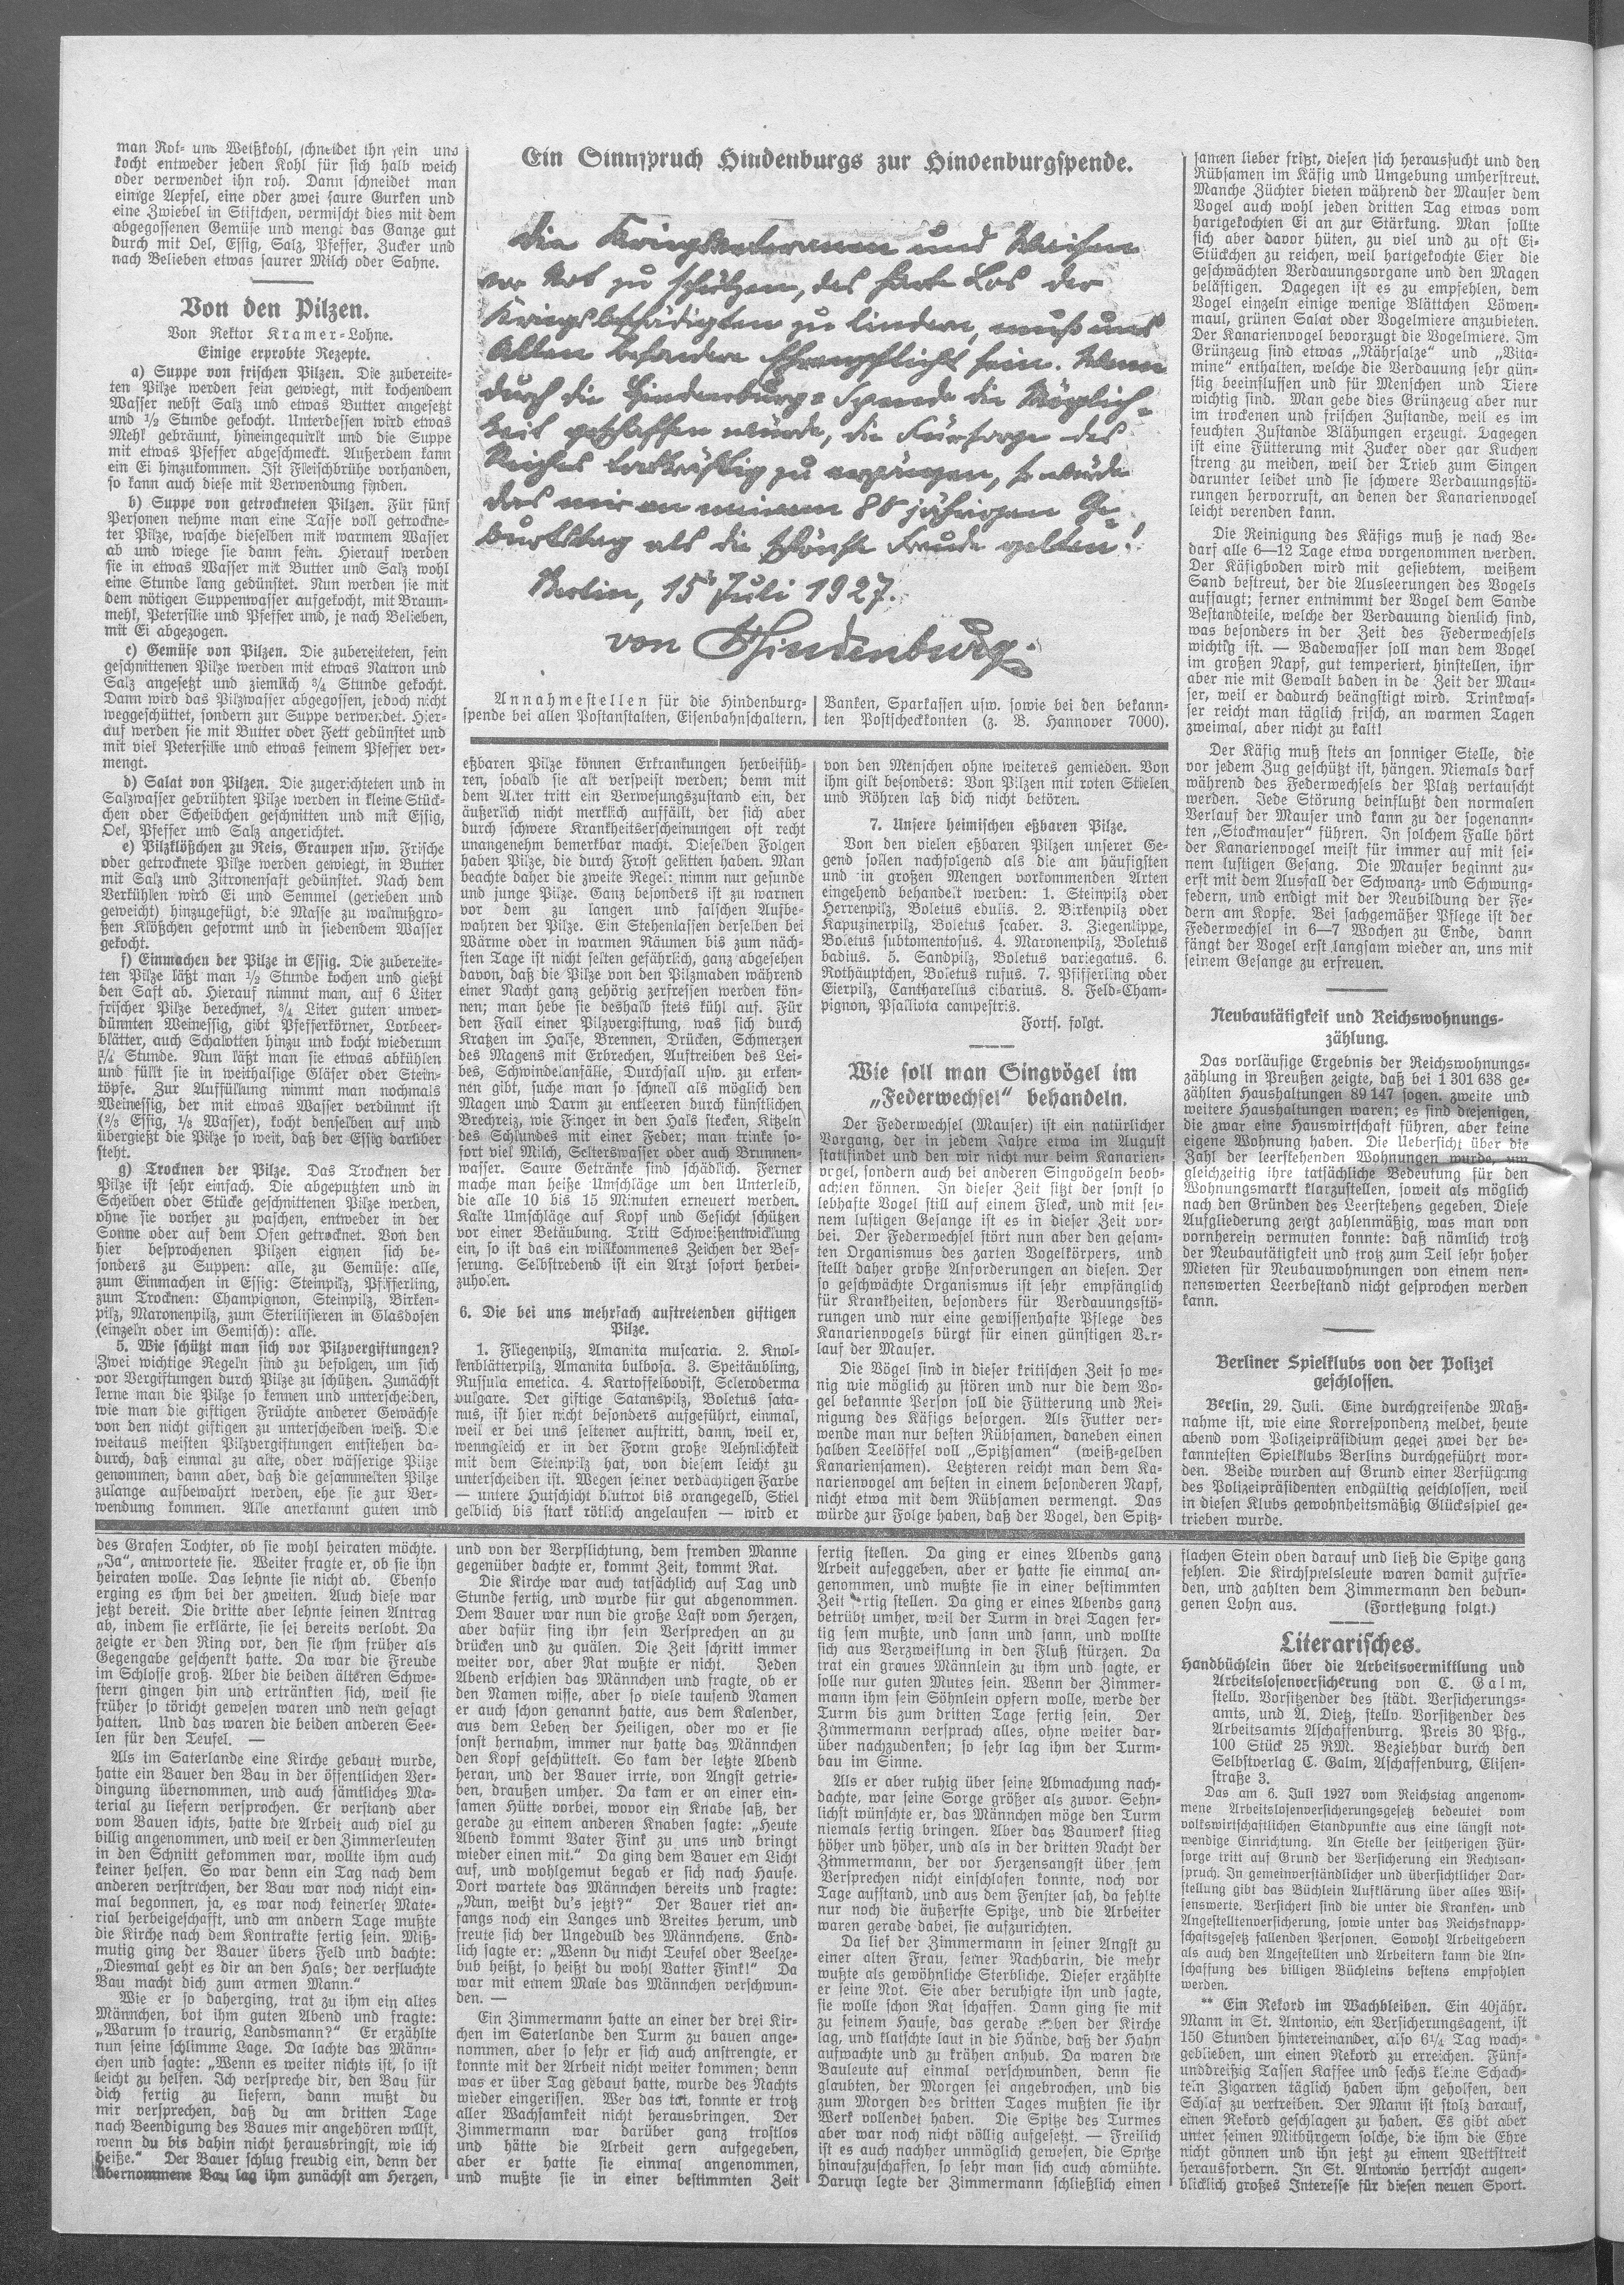 man Rot- und Weißkohl, schneidet ihn fein und
kocht entweder jeden Kohl für sich halb weich
oder verwendet ihn roh. Dann schneidet man
einige Aepfel, eine oder zwei saure Gurken und
eine Zwiebel in Stiftchen, vermischt dies mit dem
abgegossenen Gemüse und mengt das Ganze gut
durch mit Oel, Essig, Salz, Pfeffer, Zucker und
nach Belieben etwas saurer Milch oder Sahne.
Von den Pilzen.
Von Rektor Kramer-Lohne.
Einige erprobte Rezepte.
a) Suppe von frischen Pilzen. Die zubereite-
ten Pilze werden fein gewiegt, mit kochendem
Wasser nebst Salz und etwas Butter angesetzt
und 1/2 Stunde gekocht. Unterdessen wird etwas
Mehl gebräunt, hineingequirlt und die Suppe
mit etwas Pfeffer abgeschmeckt. Außerdem kann
ein Ei hinzukommen. Ist Fleischbrühe vorhanden,
so kann auch diese mit Verwendung finden.
b) Suppe von getrockneten Pilzen. Für fünf
Personen nehme man eine Tasse voll getrockne-
ter Pilze, wasche dieselben mit warmem Wasser
ab und wiege sie dann fein. Hierauf werden
sie in etwas Wasser mit Butter und Salz wohl
eine Stunde lang gedünstet. Nun werden sie mit
dem nötigen Suppenwasser aufgekocht, mit Braun-
mehl, Petersilie und Pfeffer und, je nach Belieben,
mit Ei abgezogen.
c) Gemüse von Pilzen. Die zubereiteten, fein
geschnittenen Pilze werden mit etwas Natron und
Salz angesetzt und ziemlich 3/4 Stunde gekocht.
Dann wird das Pilzwasser abgegossen, jedoch nicht
weggeschüttet, sondern zur Suppe verwendet. Hier-
auf werden sie mit Butter oder Fett gedünstet und
mit viel Petersilie und etwas feinem Pfeffer ver-
mengt.
d) Salat von Pilzen. Die zugerichteten und in
Salzwasser gebrühten Pilze werden in kleine Stück-
chen oder Scheibchen geschnitten und mit Essig,
Oel, Pfeffer und Salz angerichtet.
e) Pilzklößchen zu Reis, Graupen usw. Frische
oder getrocknete Pilze werden gewiegt, in Butter
mit Salz und Zitronensaft gedünstet. Nach dem
Verkühlen wird Ei und Semmel (gerieben und
geweicht) hinzugefügt, die Masse zu walnußgro-
ßen Klößchen geformt und in siedendem Wasser
gekocht.
f) Einmachen der Pilze in Essig. Die zubereite-
ten Pilze läßt man 1/2 Stunde kochen und gießt
den Saft ab. Hierauf nimmt man, auf 6 Liter
frischer Pilze berechnet, 3/4 Liter guten unver-
dünnten Weinessig, gibt Pfefferkörner, Lorbeer-
blätter, auch Schalotten hinzu und kocht wiederum
1/4 Stunde. Nun läßt man sie etwas abkühlen
und füllt sie in weithalsige Gläser oder Stein-
töpfe. Zur Auffüllung nimmt man nochmals
Weinessig, der mit etwas Wasser verdünnt ist
(2/3 Essig, 1/3 Wasser), kocht denselben auf und
übergießt die Pilze so weit, daß der Essig darüber
steht.
g) Trocknen der Pilze. Das Trocknen der
Pilze ist sehr einfach. Die abgeputzten und in
Scheiben oder Stücke geschnittenen Pilze werden,
ohne sie vorher zu waschen, entweder in der
Sonne oder auf dem Ofen getrocknet. Von den
hier besprochenen Pilzen eignen sich be-
sonders zu Suppen: alle, zu Gemüse: alle,
zum Einmachen in Essig: Steinpilz, Pfifferling,
zum Trocknen: Champignon, Steinpilz, Birken-
pilz, Maronenpilz, zum Sterilisieren in Glasdosen
(einzeln oder im Gemisch): alle.
5. Wie schützt man sich vor Pilzvergiftungen?
Zwei wichtige Regeln sind zu befolgen, um sich
vor Vergiftungen durch Pilze zu schützen. Zunächst
lerne man die Pilze so kennen und unterscheiden,
wie man die giftigen Früchte anderer Gewächse
von den nicht giftigen zu unterscheiden weiß. Die
weitaus meisten Pilzvergiftungen entstehen da-
durch, daß einmal zu alte, oder wässerige Pilze
genommen, dann aber, daß die gesammelten Pilze
zulange aufbewahrt werden, ehe sie zur Ver-
wendung kommen. Alle anerkannt guten und
Ein Sinnspruch Hindenburgs zur Hindenburgspende.
Die Kriegsveteranen und Waisen
vor Not zu schützen, das harte Los der
Kriegsbeschädigten zu lindern, muß uns
Allen besondere Ehrenpflicht sein. Wenn
durch die Hindenburg-Spende die Möglich-
keit geschaffen würde, die Fürsorge des
Reiches tatkräftig zu ergänzen, so würde
das mir an meinem 80 jährigen Ge-
burtstag als die schönste Freude gelten!
Berlin, 15 Juli 1927.
von Hindenburg.
Annahmestellen für die Hindenburg-
spende bei allen Postanstalten, Eisenbahnschaltern,
Banken, Sparkassen usw. sowie bei den bekann-
ten Postscheckkonten (z. B. Hannover 7000).
eßbaren Pilze können Erkrankungen herbeifüh-
ren, sobald sie alt verspeist werden; denn mit
dem Alter tritt ein Verwesungszustand ein, der
äußerlich nicht merklich auffällt, der sich aber
durch schwere Krankheitserscheinungen oft recht
unangenehm bemerkbar macht. Dieselben Folgen
haben Pilze, die durch Frost gelitten haben. Man
beachte daher die zweite Regel: nimm nur gesunde
und junge Pilze. Ganz besonders ist zu warnen
vor dem zu langen und falschen Aufbe-
wahren der Pilze. Ein Stehenlassen derselben bei
Wärme oder in warmen Räumen bis zum näch-
sten Tage ist nicht selten gefährlich, ganz abgesehen
davon, daß die Pilze von den Pilzmaden während
einer Nacht ganz gehörig zerfressen werden kön-
nen; man hebe sie deshalb stets kühl auf. Für
den Fall einer Pilzvergiftung, was sich durch
Kratzen im Halse, Brennen, Drücken, Schmerzen
des Magens mit Erbrechen, Auftreiben des Lei-
bes, Schwindelanfälle, Durchfall usw. zu erken-
nen gibt, suche man so schnell als möglich den
Magen und Darm zu entleeren durch künstlichen
Brechreiz, wie Finger in den Hals stecken, Kitzeln
des Schlundes mit einer Feder; man trinke so-
fort viel Milch, Selterswasser oder auch Brunnen-
wasser. Saure Getränke sind schädlich. Ferner
mache man heiße Umschläge um den Unterleib,
die alle 10 bis 15 Minuten erneuert werden.
Kalte Umschläge auf Kopf und Gesicht schützen
vor einer Betäubung. Tritt Schweißentwicklung
ein, so ist das ein willkommenes Zeichen der Bes-
serung. Selbstredend ist ein Arzt sofort herbei-
zuholen.
6. Die bei uns mehrfach auftretenden giftigen
Pilze.
1. Fliegenpilz, Amanita muscaria. 2. Knol-
lenblätterpilz, Amanita bulbosa. 3. Speitäubling,
Russula emetica. 4. Kartoffelbovist, Scleroderma
vulgare. Der giftige Satanspilz, Boletus sata-
nus, ist hier nicht besonders aufgeführt, einmal,
weil er bei uns seltener auftritt, dann, weil er,
wenngleich er in der Form große Aehnlichkeit
mit dem Steinpilz hat, von diesem leicht zu
unterscheiden ist. Wegen seiner verdächtigen Farbe
— untere Hutschicht blutrot bis orangegelb, Stiel
gelblich bis stark rötlich angelaufen — wird er
von den Menschen ohne weiteres gemieden. Von
ihm gilt besonders: Von Pilzen mit roten Stielen
und Röhren laß dich nicht betören.
7. Unsere heimischen eßbaren Pilze.
Von den vielen eßbaren Pilzen unserer Ge-
gend sollen nachfolgend als die am häufigsten
und in großen Mengen vorkommenden Arten
eingehend behandelt werden: 1. Steinpilz oder
Herrenpilz, Boletus edulis. 2. Birkenpilz oder
Kapuzinerpilz, Boletus scaber. 3. Ziegenlippe,
Boletus subtomentosus. 4. Maronenpilz, Boletus
badius. 5. Sandpilz, Boletus variegatus. 6.
Rothäuptchen, Boletus rufus. 7. Pfifferling oder
Eierpilz, Cantharellus cibarius. 8. Feld-Cham-
pignon, Psalliota campestris.
Forts. folgt.
Wie soll man Singvögel im
„Federwechsel“ behandeln.
Der Federwechsel (Mauser) ist ein natürlicher
Vorgang, der in jedem Jahre etwa im August
stattfindet und den wir nicht nur beim Kanarien-
vogel, sondern auch bei anderen Singvögeln beob-
achten können. In dieser Zeit sitzt der sonst so
lebhafte Vogel still auf einem Fleck, und mit sei-
nem lustigen Gesange ist es in dieser Zeit vor-
bei. Der Federwechsel stört nun aber den gesam-
ten Organismus des zarten Vogelkörpers, und
stellt daher große Anforderungen an diesen. Der
so geschwächte Organismus ist sehr empfänglich
für Krankheiten, besonders für Verdauungsstö-
rungen und nur eine gewissenhafte Pflege des
Kanarienvogels bürgt für einen günstigen Ver-
lauf der Mauser.
Die Vögel sind in dieser kritischen Zeit so we-
nig wie möglich zu stören und nur die dem Vo-
gel bekannte Person soll die Fütterung und Rei-
nigung des Käfigs besorgen. Als Futter ver-
wende man nur besten Rübsamen, daneben einen
halben Teelöffel voll „Spitzsamen“ (weiß-gelben
Kanariensamen). Letzteren reicht man dem Ka-
narienvogel am besten in einem besonderen Napf,
nicht etwa mit dem Rübsamen vermengt. Das
würde zur Folge haben, daß der Vogel, den Spitz-
samen lieber frißt, diesen sich heraussucht und den
Rübsamen im Käfig und Umgebung umherstreut.
Manche Züchter bieten während der Mauser dem
Vogel auch wohl jeden dritten Tag etwas vom
hartgekochten Ei an zur Stärkung. Man sollte
sich aber davor hüten, zu viel und zu oft Ei-
Stückchen zu reichen, weil hartgekochte Eier die
geschwächten Verdauungsorgane und den Magen
belästigen. Dagegen ist es zu empfehlen, dem
Vogel einzeln einige wenige Blättchen Löwen-
maul, grünen Salat oder Vogelmiere anzubieten.
Der Kanarienvogel bevorzugt die Vogelmiere. Im
Grünzeug sind etwas „Nährsalze“ und „Vita-
mine“ enthalten, welche die Verdauung sehr gün-
stig beeinflussen und für Menschen und Tiere
wichtig sind. Man gebe dies Grünzeug aber nur
im trockenen und frischen Zustande, weil es im
feuchten Zustande Blähungen erzeugt. Dagegen
ist eine Fütterung mit Zucker oder gar Kuchen
streng zu meiden, weil der Trieb zum Singen
darunter leidet und sie schwere Verdauungsstö-
rungen hervorruft, an denen der Kanarienvogel
leicht verenden kann.
Die Reinigung des Käfigs muß je nach Be-
darf alle 6—12 Tage etwa vorgenommen werden.
Der Käfigboden wird mit gesiebtem, weißem
Sand bestreut, der die Ausleerungen des Vogels
aufsaugt; ferner entnimmt der Vogel dem Sande
Bestandteile, welche der Verdauung dienlich sind,
was besonders in der Zeit des Federwechsels
wichtig ist. — Badewasser soll man dem Vogel
im großen Napf, gut temperiert, hinstellen, ihn
aber nie mit Gewalt baden in de Zeit der Mau-
ser, weil er dadurch beängstigt wird. Trinkwas-
ser reicht man täglich frisch, an warmen Tagen
zweimal, aber nicht zu kalt!
Der Käfig muß stets an sonniger Stelle, die
vor jedem Zug geschützt ist, hängen. Niemals darf
während des Federwechsels der Platz vertauscht
werden. Jede Störung beinflußt den normalen
Verlauf der Mauser und kann zu der sogenann-
ten „Stockmauser“ führen. In solchem Falle hört
der Kanarienvogel meist für immer auf mit sei-
nem lustigen Gesang. Die Mauser beginnt zu-
erst mit dem Ausfall der Schwanz- und Schwung-
federn, und endigt mit der Neubildung der Fe-
dern am Kopfe. Bei sachgemäßer Pflege ist der
Federwechsel in 6—7 Wochen zu Ende, dann
fängt der Vogel erst langsam wieder an, uns mit
seinem Gesange zu erfreuen.
Neubautätigkeit und Reichswohnungs-
zählung.
Das vorläufige Ergebnis der Reichswohnungs-
zählung in Preußen zeigte, daß bei 1 301 638 ge-
zählten Haushaltungen 89 147 sogen. zweite und
weitere Haushaltungen waren; es sind diejenigen,
die zwar eine Hauswirtschaft führen, aber keine
eigene Wohnung haben. Die Uebersicht über die
Zahl der leerstehenden Wohnungen wurde, um
gleichzeitig ihre tatsächliche Bedeutung für den
Wohnungsmarkt klarzustellen, soweit als möglich
nach den Gründen des Leerstehens gegeben. Diese
Aufgliederung zeigt zahlenmäßig, was man von
vornherein vermuten konnte: daß nämlich trotz
der Neubautätigkeit und trotz zum Teil sehr hoher
Mieten für Neubauwohnungen von einem nen-
nenswerten Leerbestand nicht gesprochen werden
kann.
Berliner Spielklubs von der Polizei
geschlossen.
Berlin, 29. Juli. Eine durchgreifende Maß-
nahme ist, wie eine Korrespondenz meldet, heute
abend vom Polizeipräsidium gegei zwei der be-
kanntesten Spielklubs Berlins durchgeführt wor-
den. Beide wurden auf Grund einer Verfügung
des Polizeipräsidenten endgültig geschlossen, weil
in diesen Klubs gewohnheitsmäßig Glücksspiel ge-
trieben wurde.
des Grafen Tochter, ob sie wohl heiraten möchte.
„Ja“, antwortete sie. Weiter fragte er, ob sie ihn
heiraten wolle. Das lehnte sie nicht ab. Ebenso
erging es ihm bei der zweiten. Auch diese war
jetzt bereit. Die dritte aber lehnte seinen Antrag
ab, indem sie erklärte, sie sei bereits verlobt. Da
zeigte er den Ring vor, den sie ihm früher als
Gegengabe geschenkt hatte. Da war die Freude
im Schlosse groß. Aber die beiden älteren Schwe-
stern gingen hin und ertränkten sich, weil sie
früher so töricht gewesen waren und nein gesagt
hatten. Und das waren die beiden anderen See-
len für den Teufel. —
Als im Saterlande eine Kirche gebaut wurde,
hatte ein Bauer den Bau in der öffentlichen Ver-
dingung übernommen, und auch sämtliches Ma-
terial zu liefern versprochen. Er verstand aber
vom Bauen ichts, hatte die Arbeit auch viel zu
billig angenommen, und weil er den Zimmerleuten
in den Schnitt gekommen war, wollte ihm auch
keiner helfen. So war denn ein Tag nach dem
anderen verstrichen, der Bau war noch nicht ein-
mal begonnen, ja, es war noch keinerlei Mate-
rial herbeigeschafft, und am andern Tage mußte
die Kirche nach dem Kontrakte fertig sein. Miß-
mutig ging der Bauer übers Feld und dachte:
„Diesmal geht es dir an den Hals; der verfluchte
Bau macht dich zum armen Mann.“
Wie er so daherging, trat zu ihm ein altes
Männchen, bot ihm guten Abend und fragte:
„Warum so traurig, Landsmann?“ Er erzählte
nun seine schlimme Lage. Da lachte das Männ-
chen und sagte: „Wenn es weiter nichts ist, so ist
leicht zu helfen. Ich verspreche dir, den Bau für
dich fertig zu liefern, dann mußt du
mir versprechen, daß du am dritten Tage
nach Beendigung des Baues mir angehören willst,
wenn du bis dahin nicht herausbringst, wie ich
heiße.“ Der Bauer schlug freudig ein, denn der
übernommene Bau lag ihm zunächst am Herzen,
und von der Verpflichtung, dem fremden Manne
gegenüber dachte er, kommt Zeit, kommt Rat.
Die Kirche war auch tatsächlich auf Tag und
Stunde fertig, und wurde für gut abgenommen.
Dem Bauer war nun die große Last vom Herzen,
aber dafür fing ihn sein Versprechen an zu
drücken und zu quälen. Die Zeit schritt immer
weiter vor, aber Rat wußte er nicht. Jeden
Abend erschien das Männchen und fragte, ob er
den Namen wisse, aber so viele tausend Namen
er auch schon genannt hatte, aus dem Kalender,
aus dem Leben der Heiligen, oder wo er sie
sonst hernahm, immer nur hatte das Männchen
den Kopf geschüttelt. So kam der letzte Abend
heran, und der Bauer irrte, von Angst getrie-
ben, draußen umher. Da kam er an einer ein-
samen Hütte vorbei, wovor ein Knabe saß, der
gerade zu einem anderen Knaben sagte: „Heute
Abend kommt Vater Fink zu uns und bringt
wieder einen mit.“ Da ging dem Bauer ein Licht
auf, und wohlgemut begab er sich nach Hause.
Dort wartete das Männchen bereits und fragte:
„Nun, weißt du's jetzt?“ Der Bauer riet an-
fangs noch ein Langes und Breites herum, und
freute sich der Ungeduld des Männchens. End-
lich sagte er: „Wenn du nicht Teufel oder Beelze-
bub heißt, so heißt du wohl Vatter Fink!“ Da
war mit einem Male das Männchen verschwun-
den. —
Ein Zimmermann hatte an einer der drei Kir-
chen im Saterlande den Turm zu bauen ange-
nommen, aber so sehr er sich auch anstrengte, er
konnte mit der Arbeit nicht weiter kommen; denn
was er über Tag gebaut hatte, wurde des Nachts
wieder eingerissen. Wer das tat, konnte er trotz
aller Wachsamkeit nicht herausbringen. Der
Zimmermann war darüber ganz trostlos
und hätte die Arbeit gern aufgegeben,
aber er hatte sie einmal angenommen,
und mußte sie in einer bestimmten Zeit
fertig stellen. Da ging er eines Abends ganz
Arbeit aufeggeben, aber er hatte sie einmal an-
genommen, und mußte sie in einer bestimmten
Zeit rtig stellen. Da ging er eines Abends ganz
betrübt umher, weil der Turm in drei Tagen fer-
tig sein mußte, und sann und sann, und wollte
sich aus Verzweiflung in den Fluß stürzen. Da
trat ein graues Männlein zu ihm und sagte, er
solle nur guten Mutes sein. Wenn der Zimmer-
mann ihm sein Söhnlein opfern wolle, werde der
Turm bis zum dritten Tage fertig sein. Der
Zimmermann versprach alles, ohne weiter dar-
über nachzudenken; so sehr lag ihm der Turm-
bau im Sinne.
Als er aber ruhig über seine Abmachung nach-
dachte, war seine Sorge größer als zuvor. Sehn-
lichst wünschte er, das Männchen möge den Turm
niemals fertig bringen. Aber das Bauwerk stieg
höher und höher, und als in der dritten Nacht der
Zimmermann, der vor Herzensangst über sein
Versprechen nicht einschlafen konnte, noch vor
Tage aufstand, und aus dem Fenster sah, da fehlte
nur noch die äußerste Spitze, und die Arbeiter
waren gerade dabei, sie aufzurichten.
Da lief der Zimmermann in seiner Angst zu
einer alten Frau, seiner Nachbarin, die mehr
wußte als gewöhnliche Sterbliche. Dieser erzählte
er seine Not. Sie aber beruhigte ihn und sagte,
sie wolle schon Rat schaffen. Dann ging sie mit
zu seinem Hause, das gerade neben der Kirche
lag, und klatschte laut in die Hände, daß der Hahn
aufwachte und zu krähen anhub. Da waren die
Bauleute auf einmal verschwunden, denn sie
glaubten, der Morgen sei angebrochen, und bis
zum Morgen des dritten Tages mußten sie ihr
Werk vollendet haben. Die Spitze des Turmes
aber war noch nicht völlig aufgesetzt. — Freilich
ist es auch nachher unmöglich gewesen, die Spitze
hinaufzuschaffen, so sehr man sich auch abmühte.
Darum legte der Zimmermann schließlich einen
flachen Stein oben darauf und ließ die Spitze ganz
fehlen. Die Kirchspielsleute waren damit zufrie-
den, und zahlten dem Zimmermann den bedun-
genen Lohn aus. (Fortsetzung folgt.)
Literarisches.
Handbüchlein über die Arbeitsvermittlung und
Arbeitslosenversicherung von C. Galm,
stellv. Vorsitzender des städt. Versicherungs-
amts, und A. Dietz, stellv. Vorsitzender des
Arbeitsamts Aschaffenburg. Preis 30 Pfg.,
100 Stück 25 RM. Beziehbar durch den
Selbstverlag C. Galm, Aschaffenburg, Elisen-
straße 3.
Das am 6. Juli 1927 vom Reichstag angenom-
mene Arbeitslosenversicherungsgesetz bedeutet vom
volkswirtschaftlichen Standpunkte aus eine längst not-
wendige Einrichtung. An Stelle der seitherigen Für-
sorge tritt auf Grund der Versicherung ein Rechtsan-
spruch. In gemeinverständlicher und übersichtlicher Dar-
stellung gibt das Büchlein Aufklärung über alles Wis-
senswerte. Versichert sind die unter die Kranken- und
Angestelltenversicherung, sowie unter das Reichsknapp-
schaftsgesetz fallenden Personen. Sowohl Arbeitgebern
als auch den Angestellten und Arbeitern kann die An-
schaffung des billigen Büchleins bestens empfohlen
werden.
** Ein Rekord im Wachbleiben. Ein 40jähr.
Mann in St. Antonio, ein Versicherungsagent, ist
150 Stunden hintereinander, also 6 1/4 Tag wach-
geblieben, um einen Rekord zu erreichen. Fünf-
unddreißig Tassen Kaffee und sechs kleine Schach-
teln Zigarren täglich haben ihm geholfen, den
Schlaf zu vertreiben. Der Mann ist stolz darauf,
einen Rekord geschlagen zu haben. Es gibt aber
unter seinen Mitbürgern solche, die ihm die Ehre
nicht gönnen und ihn jetzt zu einem Wettstreit
herausfordern. In St. Antonio herrscht augen-
blicklich großes Interesse für diesen neuen Sport.